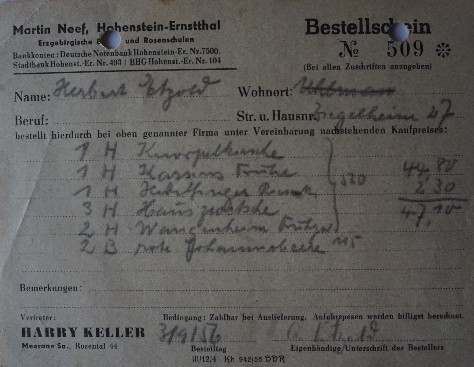 Martin Neef, Hohenstein-Ernstthal
Erzgebirgische und Rosenschulen
Bankkonten: Deutsche Notenbank Hohenstein-Er. Nr. 7500,
Stadtbank Hohenst.-Er. Nr. 493 / BHG Hohenst.-Er. Nr. 104
Bestellschein
№ 509 ※
(Bei allen Zuschriften anzugeben)
Name: Herbert Etzold Wohnort:
Beruf: Str. u. Hausnr. Ziegelheim 27
bestellt hierdurch bei oben genannter Firma unter Vereinbarung nachstehenden Kaufpreises:
1 H Knorpelkirsche
1 H Kassins Frühe 44,80
1 H Hedelfinger 530 2 30
3 H Hauszwetsche 47,10
2 H Wangenheim Frühzw
2 B rote Johannisbeere
Bemerkungen:
Vertreter: Bedingung: Zahlbar bei Auslieferung. Anfuhrspesen werden billigst berechnet.
HARRY KELLER 3/9/56
Meerane Sa., Rosental 44 Bestelltag Eigenhändige Unterschrift des Bestellers
III/12/4 Kh 942/55 DDR